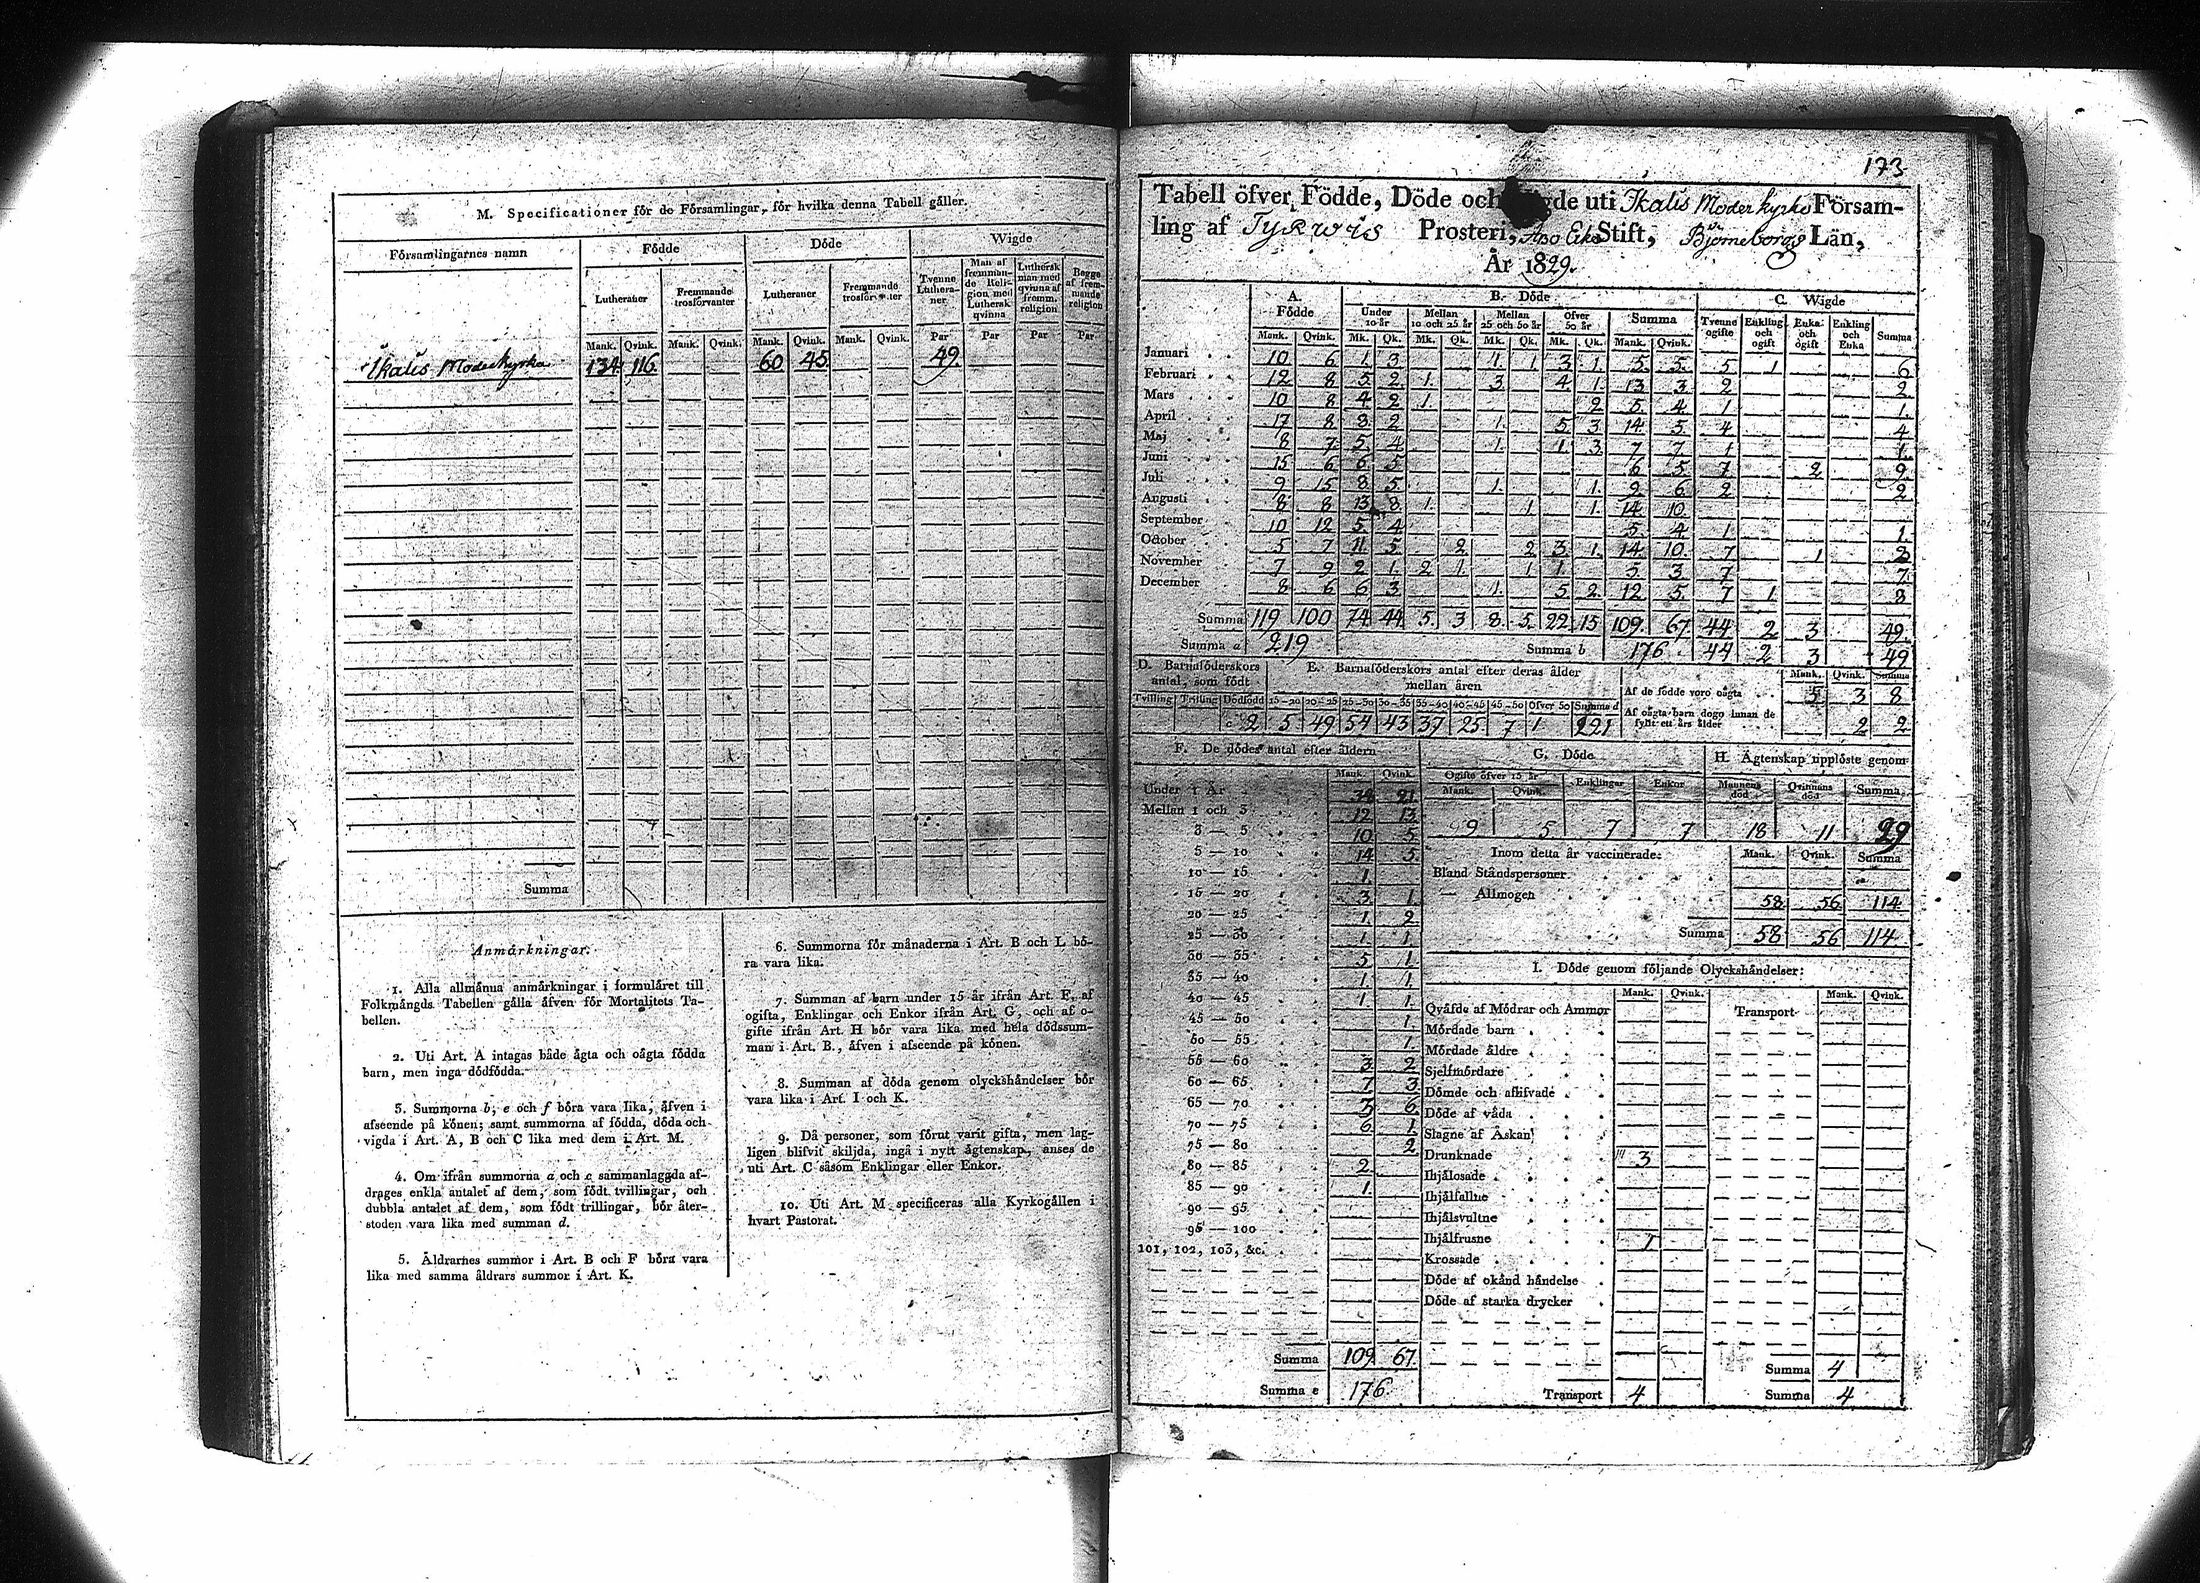 M. Specificationer för de Församlingar, för hvilka denna Tabell gäller.
Församlingarnes namn | Födde | Döde | Wigde
Lutheraner | Fremmande trosförvanter | Lutheraner | Fremmande trosförvanter | Tvenne Lutheraner. | Man af fremmande Religion med Luthersk qvinna | Luthersk man med qvinna af fremm. religion | Begge af fremmande religion
Mank. Qvink. Mank. Qvink. Mank. Qvink. Mank. Qvink. Par Par Par Par
Ikalis Moderkyrka 134 116 60 45 49.
Summa
Anmärkningar.
1. Alla allmänna anmärkningar i formuläret till
Folkmängds Tabellen gälla äfven för Mortalitets Ta-
bellen.
2. Uti Art. A intagas både ägta och oägta födda
barn, men inga dödfödda.
3. Summorna b, e och f böra vara lika, äfven i
afseende på könen; samt summorna af födda, döda och
vigda i Art. A, B och C lika med dem i Art. M.
4. Om ifrån summorna a och c sammanlaggda af-
drages enkla antalet af dem, som födt tvillingar, och
dubbla antalet af dem, som födt trillingar, bör åter-
stoden vara lika med summan d.
5. Äldrarnes summor i Art. B och F böra vara
lika med samma äldrars summor i Art. K.
6. Summorna för månaderna i Art. B och L bö-
ra vara lika.
7. Summan af barn under 15 år ifrån Art. F, af
ogifta, Enklingar och Enkor ifrån Art. G, och af o-
gifte ifrån Art. H bör vara lika med hela dödssum-
man i Art. B., äfven i afseende på könen.
8. Summan af döda genom olyckshändelser bör
vara lika i Art. I och K.
9. Då personer, som förut varit gifta, men lag-
ligen blifvit skiljda, ingå i nytt ägtenskap, anses de
uti Art. C såsom Enklingar eller Enkor.
10. Uti Art. M specificeras alla Kyrkogällen i
hvart Pastorat.
173
Tabell öfver Födde, Döde och gde uti Ikalis Moderkyrko Försam-
ling af Tyrwis Prosteri, Åbo Erke Stift, Björneborgs Län,
År 1829.
A. Födde | B. Döde | C. Wigde
Under 10 år | Mellan 10 och 25 år | Mellan 25 och 50 år | Öfver 50 år | Summa | Tvenne ogifte | Enkling och ogift | Enka och ogift | Enkling och Enka | Summa
Mank. Qvink. Mk. Qk. Mk. Qk. Mk. Qk. Mk. Qk. Mank. Qvink.
Januari 10 6 1 3 1 1 3 1 5 5 5 1 6
Februari 12 8 5 2 1 3 4 1 13 3 2 2
Mars 10 8 4 2 1 2 5 4 1 1
April 17 8 8 2 1 5 3 14 5 4 4
Maj 8 7 5 4 1 1 3 7 7 1 1
Juni 15 6 6 5 6 5 7 2 9
Juli 9 15 8 5 1 1 9 6 2 2
Augusti 8 8 13 8 1 1 1 14 10
September 10 12 5 4 5 4 1 1
October 5 7 11 5 2 2 3 1 14 10 7 1
November 7 9 2 1 2 1 1 1 5 3 7 7
December 8 6 6 3 1 5 2 12 5 7 1 8
Summa 119 100 74 44 5 3 8 5 22 15 109 67 44 2 3 49
Summa a 219 Summa b 176 44 2 3 49
D. Barnaföderskors antal, som födt
E. Barnaföderskors antal efter deras ålder mellan åren
Tvilling Trilling Dödfödd 15–20 20–25 25–30 30–35 35–40 40–45 45–50 Öfver 50 Summa d
c 2 5 49 54 43 37 25 7 1 221
Mank. Qvink. Summa
Af de födde voro oägta 5 3 8
Af oägta barn dogo innan de fyllt ett års ålder 2 2
F. De dödes antal efter åldern
Mank. Qvink.
Under 1 År 34 21
Mellan 1 och 3 12 13
3 — 5 10 5
5 — 10 14 5
10 — 15 1
15 — 20 3 1
20 — 25 1 2
25 — 30 1 1
30 — 35 5 1
35 — 40 1 1
40 — 45 1 1
45 — 50 1
50 — 55 1
55 — 60 3 2
60 — 65 7 3
65 — 70 3 6
70 — 75 6 1
75 — 80 2
80 — 85 2
85 — 90 1
90 — 95
95 — 100
101, 102, 103, &c.
Summa 109 67
Summa e 176
G. Döde
Ogifte öfver 15 år | Enklingar | Enkor
Mank. Qvink.
9 5 7 7
H. Ägtenskap upplöste genom
Mannens död | Qvinnans död | Summa
18 11 29
Inom detta år vaccinerade: Mank. Qvink. Summa
Bland Ståndspersoner
— Allmogen 58 56 114
Summa 58 56 114
I. Döde genom följande Olyckshändelser:
Mank. Qvink. Transport Mank. Qvink.
Qväfde af Mödrar och Ammor
Mördade barn
Mördade äldre
Sjelfmördare
Dömde och aflifvade
Döde af våda
Slagne af Åskan
Drunknade 3
Ihjälosade
Ihjälfallne
Ihjälsvultne
Ihjälfrusne 1
Krossade
Döde af okänd händelse
Döde af starka drycker
Summa 4
Transport 4 Summa 4